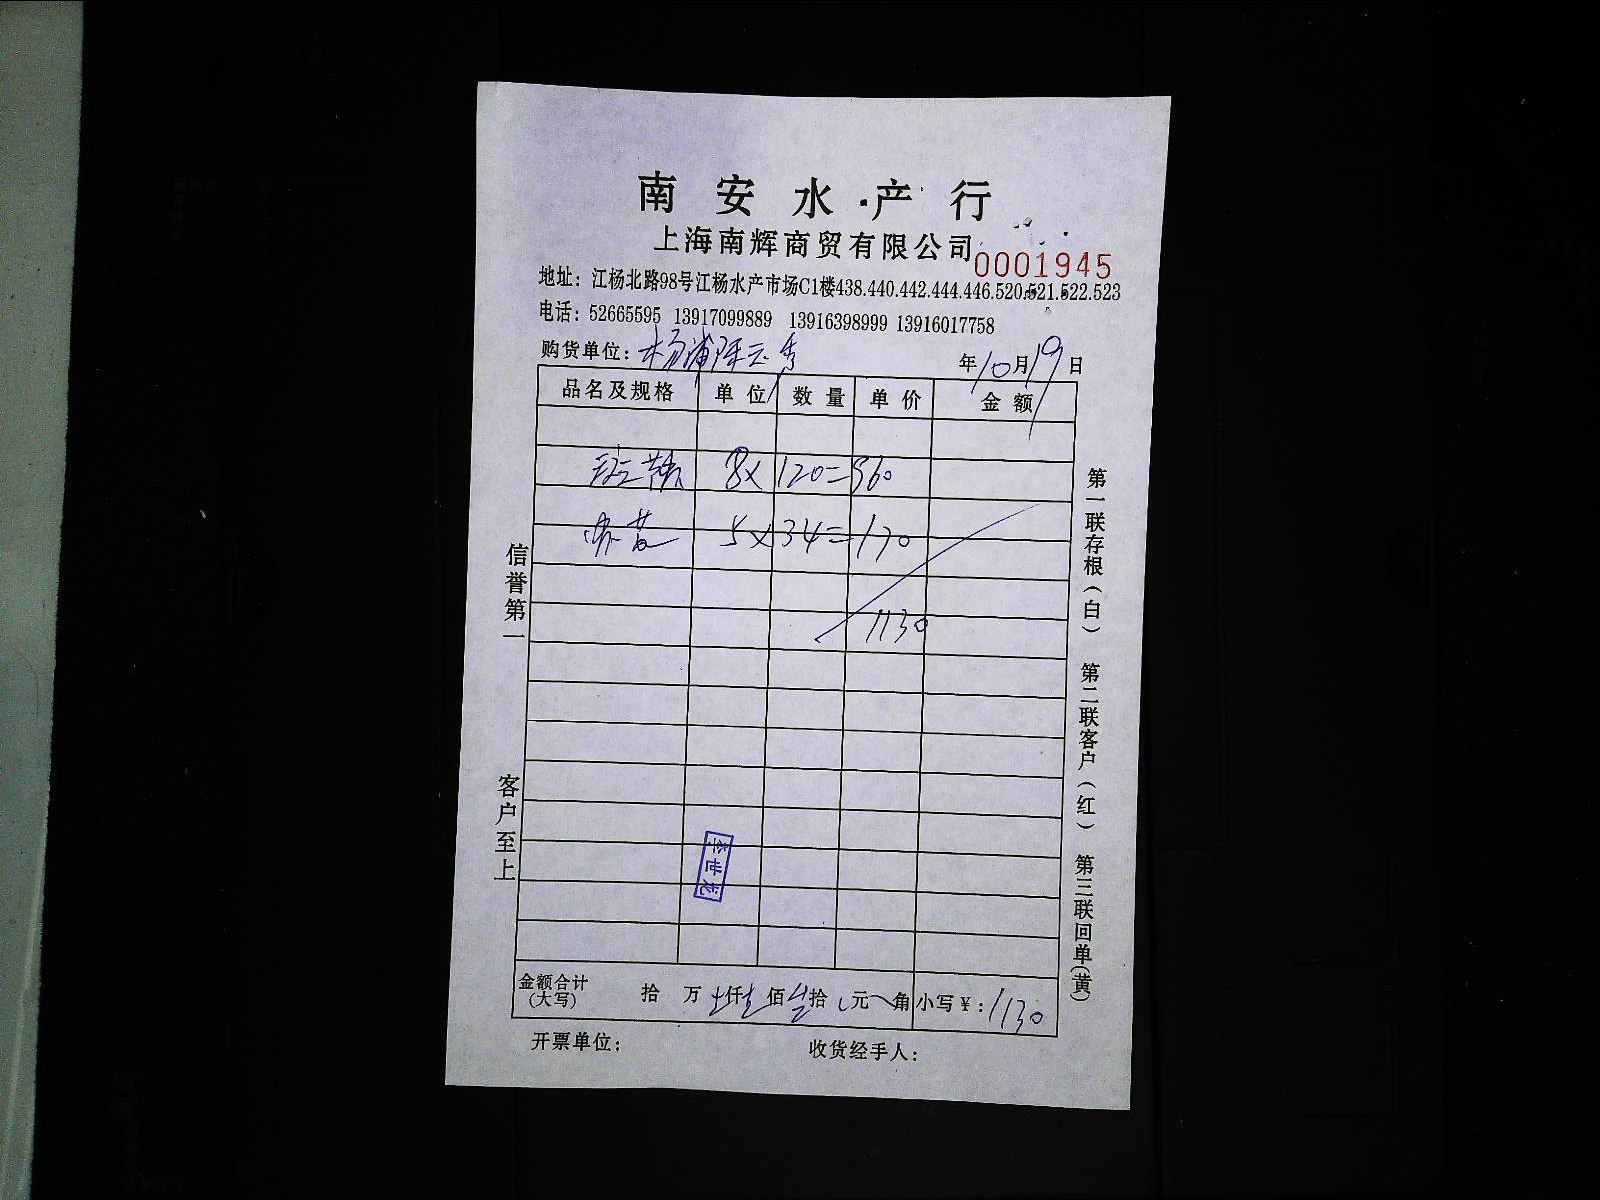 南安水产行
上海南辉商贸有限公司 0001945
地址：江杨北路98号江杨水产市场C1楼438.440.442.444.446.520.521.522.523
电话：52665595 13917099889 13916398999 13916017758
购货单位：杨浦陈玉秀 年10月19日
品名及规格 单位 数量 单价 金额
8x 120=960
5x 34=170
1130
信誉第一
客户至上
第一联存根（白） 第二联客户（红） 第三联回单（黄）
李世龙
金额合计（大写） 拾 万 壹仟壹佰叁拾 元 角 小写￥：1130
开票单位： 收货经手人：